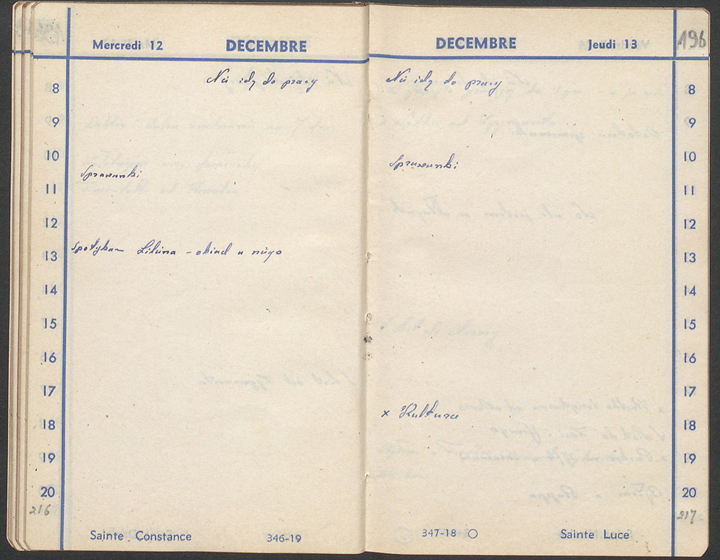 Mercredi 12 DECEMBRE
Nie idę do pracy
8
9
10
Sprawunki
11
12
Spotykam - obiad u niego
13
14
15
16
17
18
19
20
216
Sainte Constance 346-19
DECEMBRE Jeudi 13
196
Nie idę do pracy
8
9
10
Sprawunki
11
12
13
14
15
16
17
x Kultura
18
19
20
217
347-18 Sainte Luce